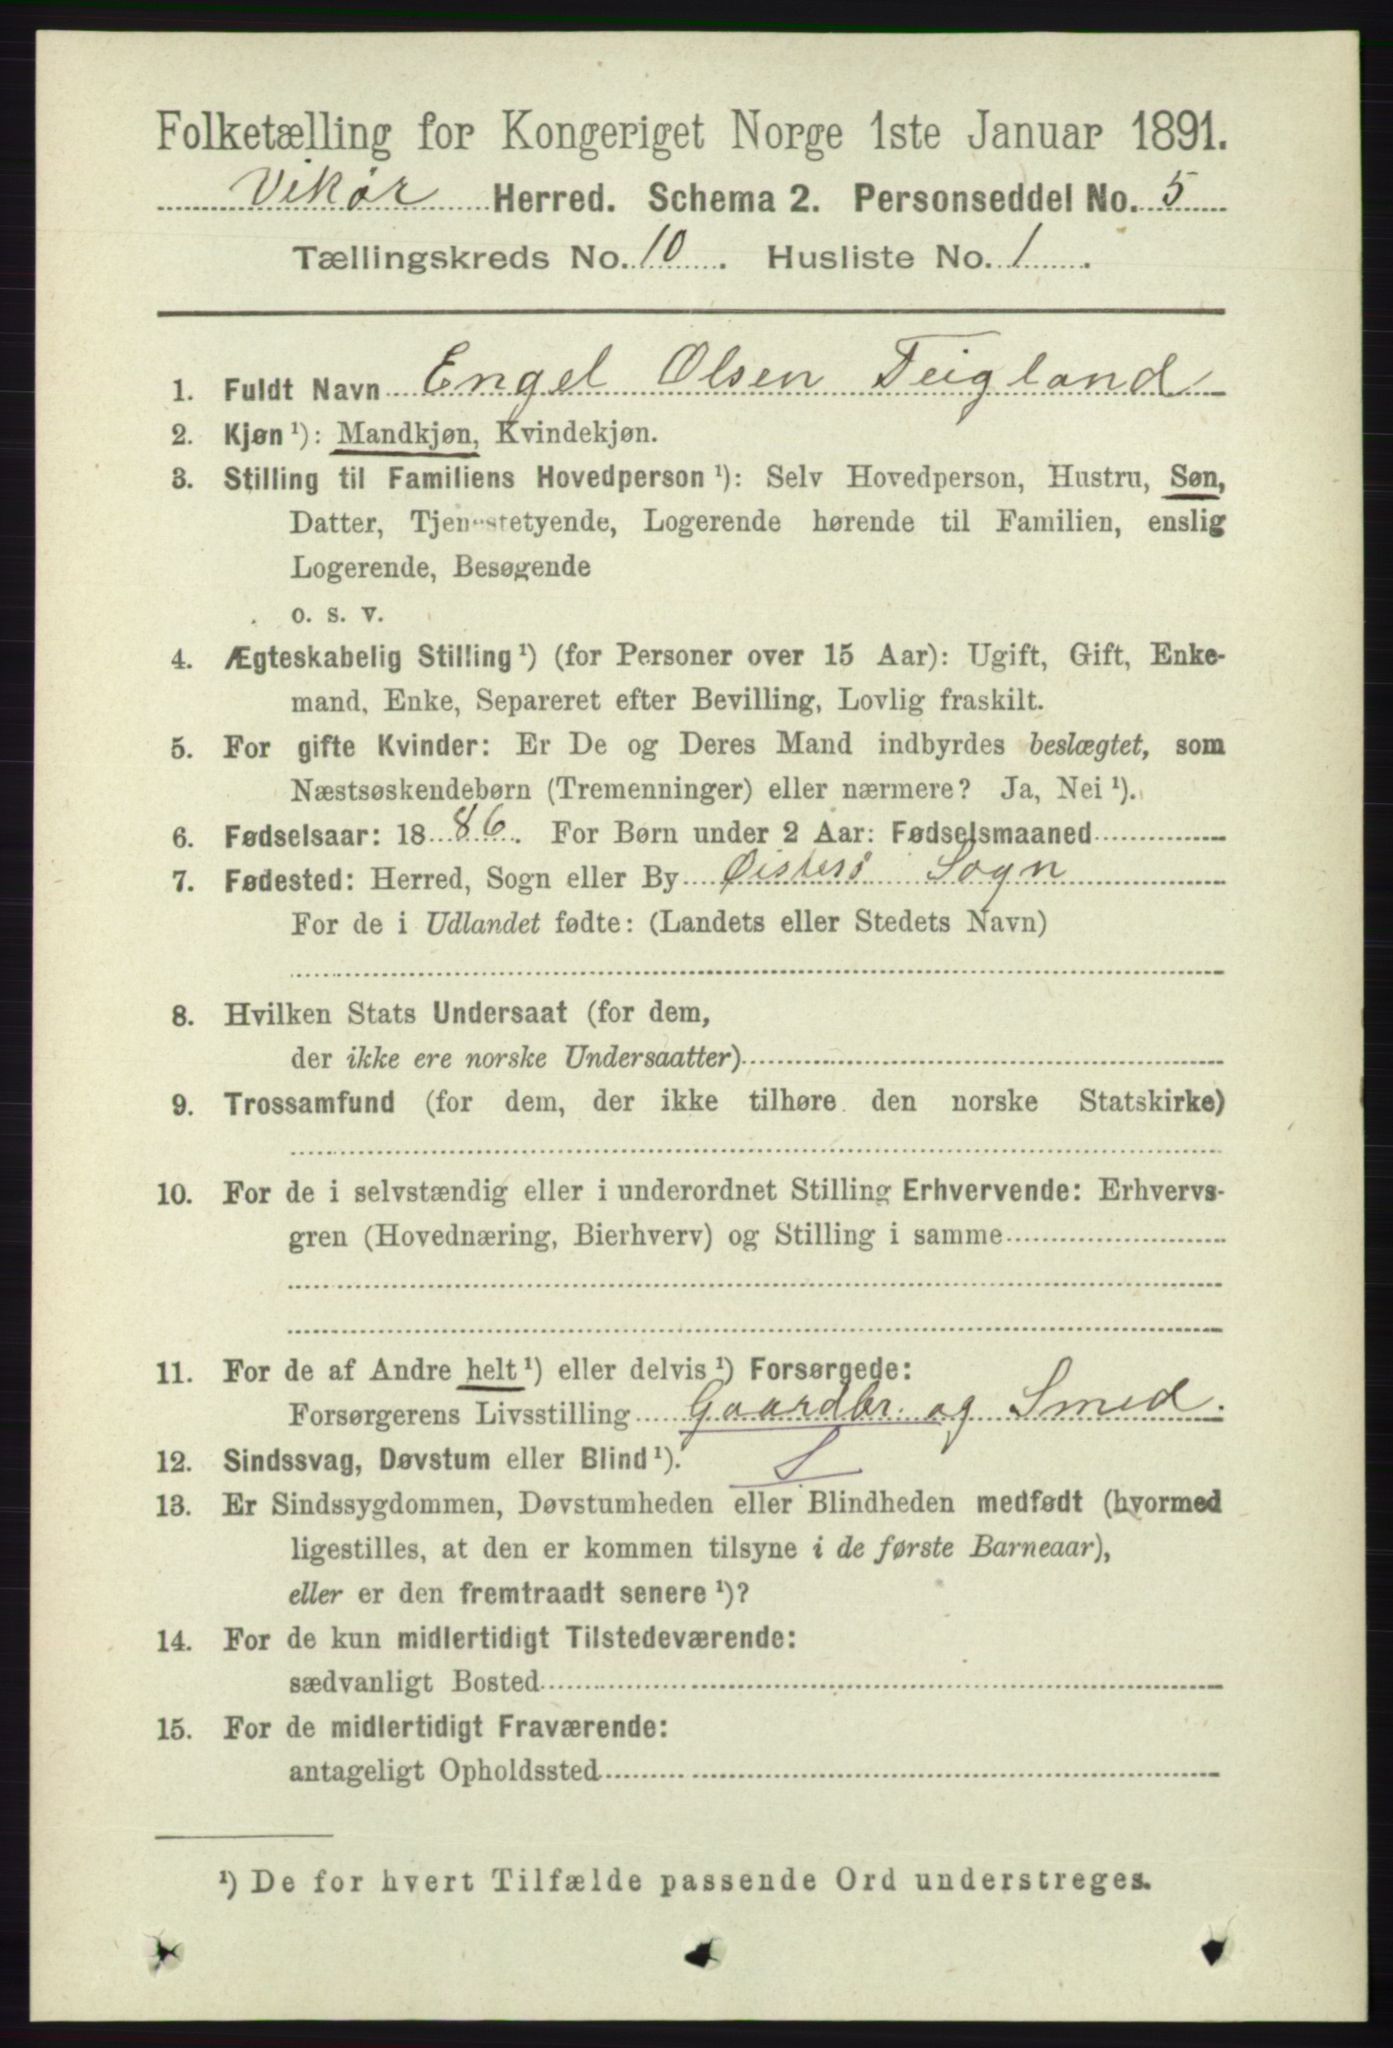 Folketælling for Kongeriget Norge 1ste Januar 1891.
Vikør Herred. Schema 2. Personseddel No. 5
Tællingskreds No. 10. Husliste No. 1.
1. Fuldt Navn Engel Olsen Teigland
2. Kjøn ¹): Mandkjøn, Kvindekjøn.
3. Stilling til Familiens Hovedperson ¹): Selv Hovedperson, Hustru, Søn,
Datter, Tjenestetyende, Logerende hørende til Familien, enslig
Logerende, Besøgende
o. s. v.
4. Ægteskabelig Stilling ¹) (for Personer over 15 Aar): Ugift, Gift, Enke-
mand, Enke, Separeret efter Bevilling, Lovlig fraskilt.
5. For gifte Kvinder: Er De og Deres Mand indbyrdes beslægtet, som
Næstsøskendebørn (Tremenninger) eller nærmere? Ja, Nei ¹).
6. Fødselsaar: 1886. For Børn under 2 Aar: Fødselsmaaned
7. Fødested: Herred, Sogn eller By Øistesø Sogn
For de i Udlandet fødte: (Landets eller Stedets Navn)
8. Hvilken Stats Undersaat (for dem,
der ikke ere norske Undersaatter)
9. Trossamfund (for dem, der ikke tilhøre den norske Statskirke)
10. For de i selvstændig eller i underordnet Stilling Erhvervende: Erhvervs-
gren (Hovednæring, Bierhverv) og Stilling i samme
11. For de af Andre helt ¹) eller delvis ¹) Forsørgede:
Forsørgerens Livsstilling Gaardbr. og Smed.
12. Sindssvag, Døvstum eller Blind ¹). S
13. Er Sindssygdommen, Døvstumheden eller Blindheden medfødt (hvormed
ligestilles, at den er kommen tilsyne i de første Barneaar),
eller er den fremtraadt senere ¹)?
14. For de kun midlertidigt Tilstedeværende:
sædvanligt Bosted
15. For de midlertidigt Fraværende:
antageligt Opholdssted
¹) De for hvert Tilfælde passende Ord understreges.